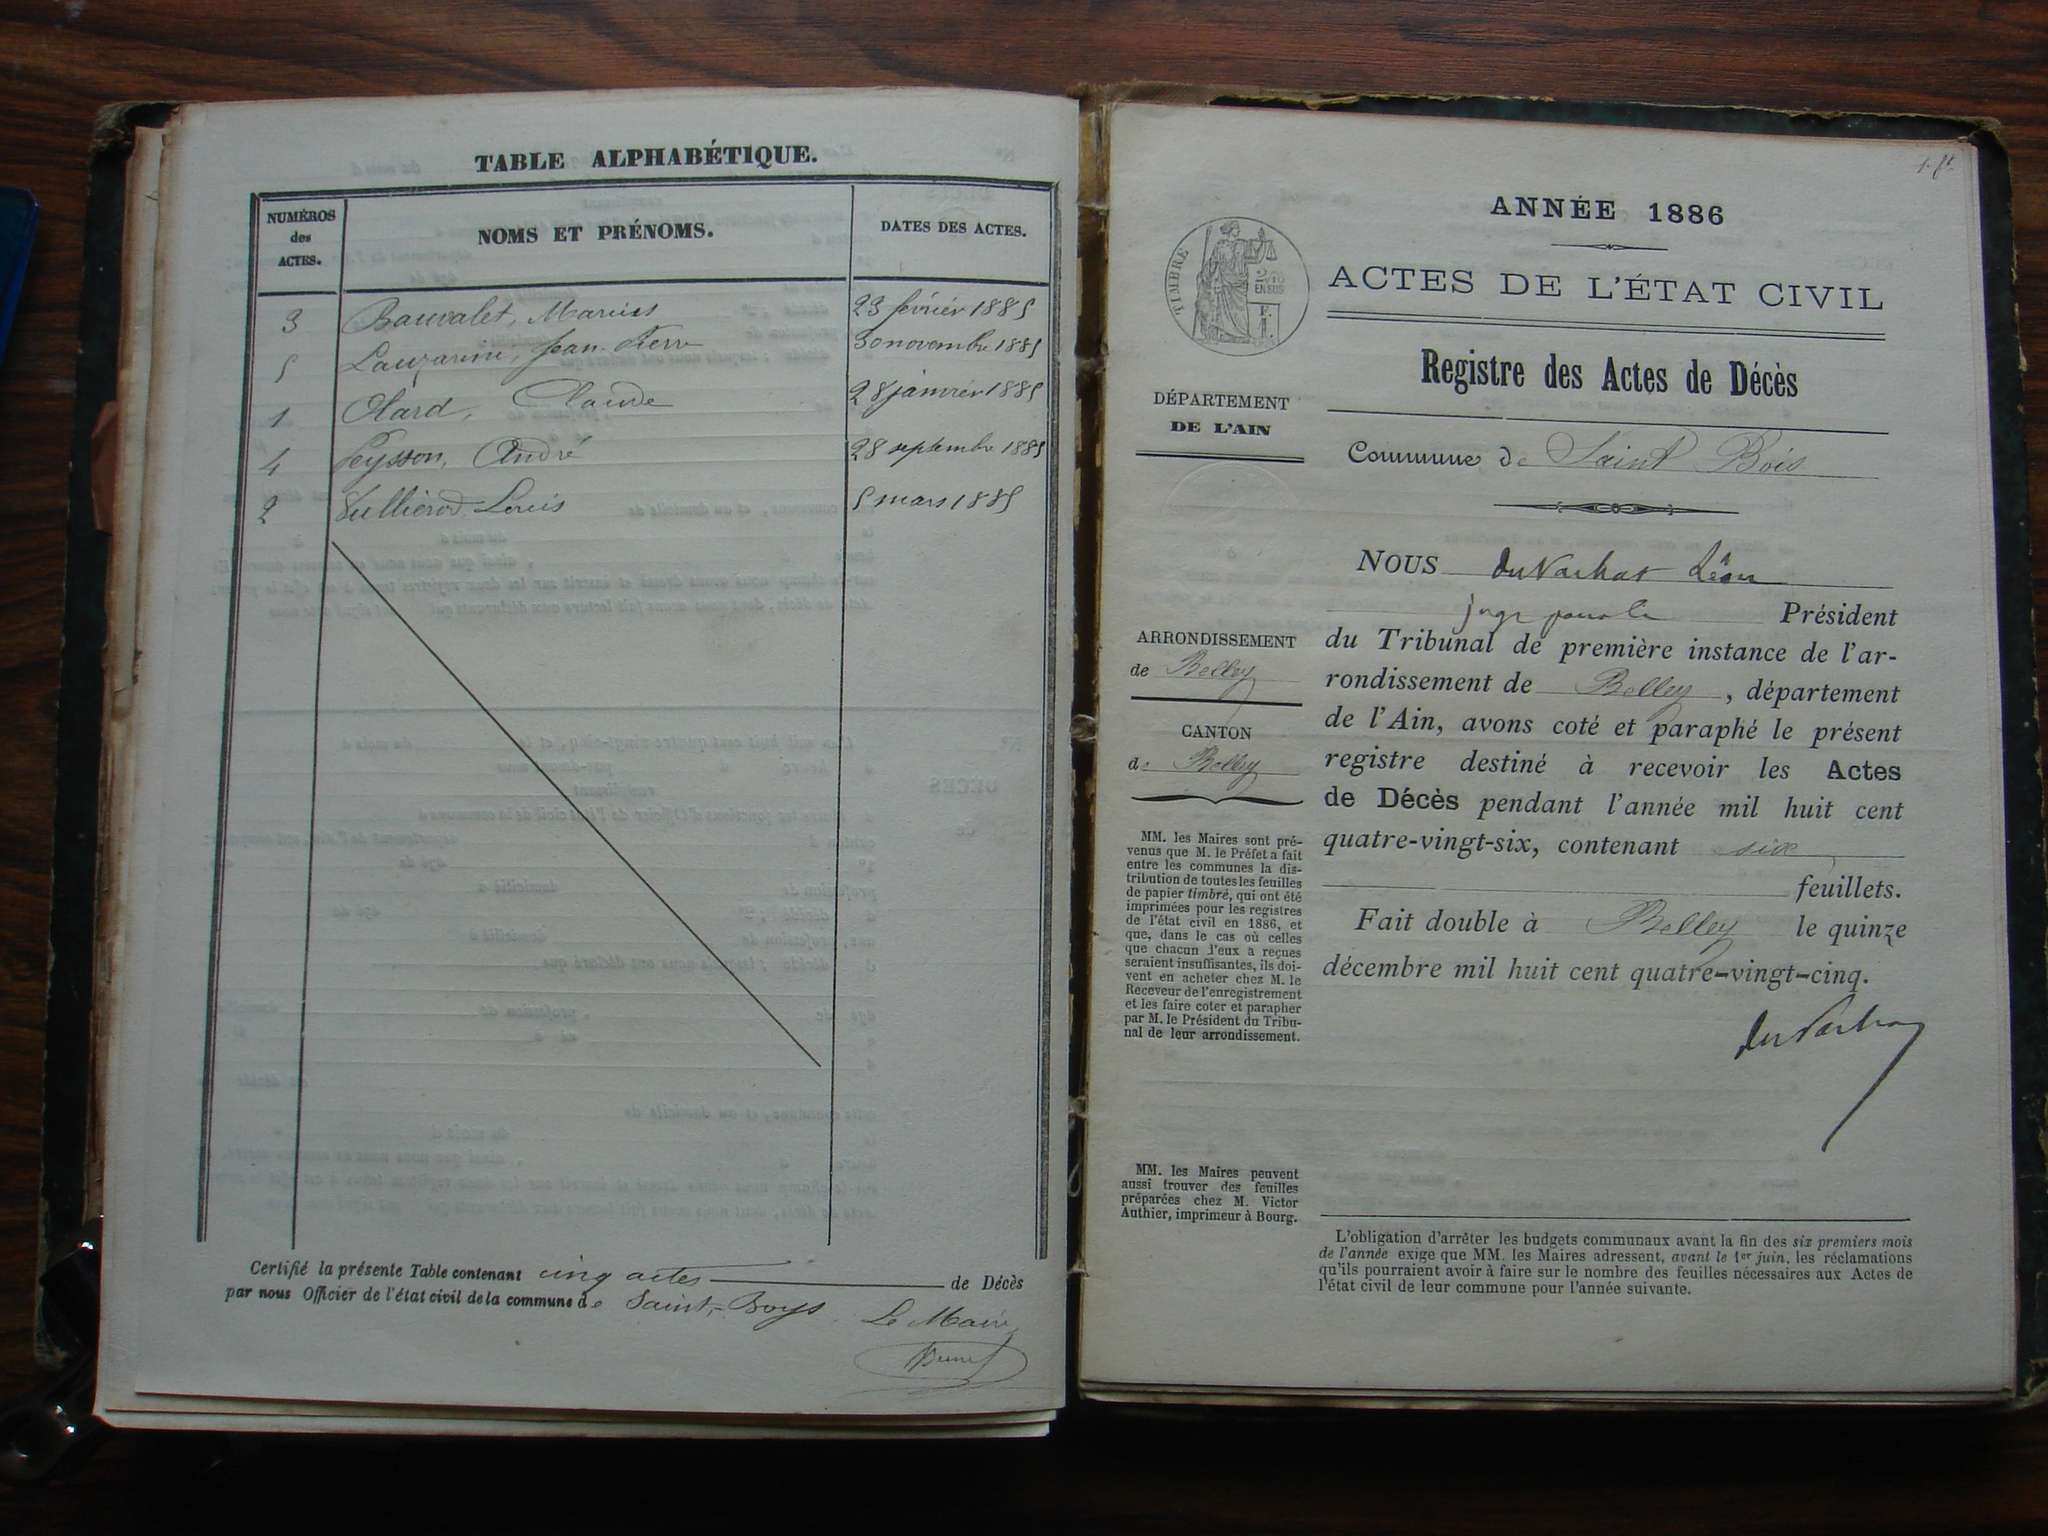 TABLE ALPHABÉTIQUE.
NUMÉROS des ACTES.
NOMS ET PRÉNOMS.
DATES DES ACTES.
3 Bauvalet, Marius 23 février 1885
5 Jean Pierre 30 novembre 1885
1 Olard, Claude 28 janvier 1885
4 Peysson, André 28 septembre 1885
2 Vulliérod Louis 5 mars 1885
Certifié la présente Table contenant cinq actes de Décès
par nous Officier de l'état civil de la commune de Saint-Boys Le Maire
ANNÉE 1886
TIMBRE
2/10
EN SUS
ACTES DE L'ÉTAT CIVIL
Registre des Actes de Décès
DÉPARTEMENT
DE L'AIN
Commune de Saint Bois
NOUS Léon
juge Président
du Tribunal de première instance de l'ar-
rondissement de Belley, département
de l'Ain, avons coté et paraphé le présent
registre destiné à recevoir les Actes
de Décès pendant l'année mil huit cent
quatre-vingt-six, contenant six
feuillets.
Fait double à Belley le quinze
décembre mil huit cent quatre-vingt-cinq.
ARRONDISSEMENT
de Belley
CANTON
de Belley
MM. les Maires sont pré-
venus que M. le Préfet a fait
entre les communes la dis-
tribution de toutes les feuilles
de papier timbré, qui ont été
imprimées pour les registres
de l'état civil en 1886, et
que, dans le cas où celles
que chacun d'eux a reçues
seraient insuffisantes, ils doi-
vent en acheter chez M. le
Receveur de l'enregistrement
et les faire coter et parapher
par M. le Président du Tribu-
nal de leur arrondissement.
MM. les Maires peuvent
aussi trouver des feuilles
préparées chez M. Victor
Authier, imprimeur à Bourg.
L'obligation d'arrêter les budgets communaux avant la fin des six premiers mois
de l'année exige que MM. les Maires adressent, avant le 1er juin, les réclamations
qu'ils pourraient avoir à faire sur le nombre des feuilles nécessaires aux Actes de
l'état civil de leur commune pour l'année suivante.